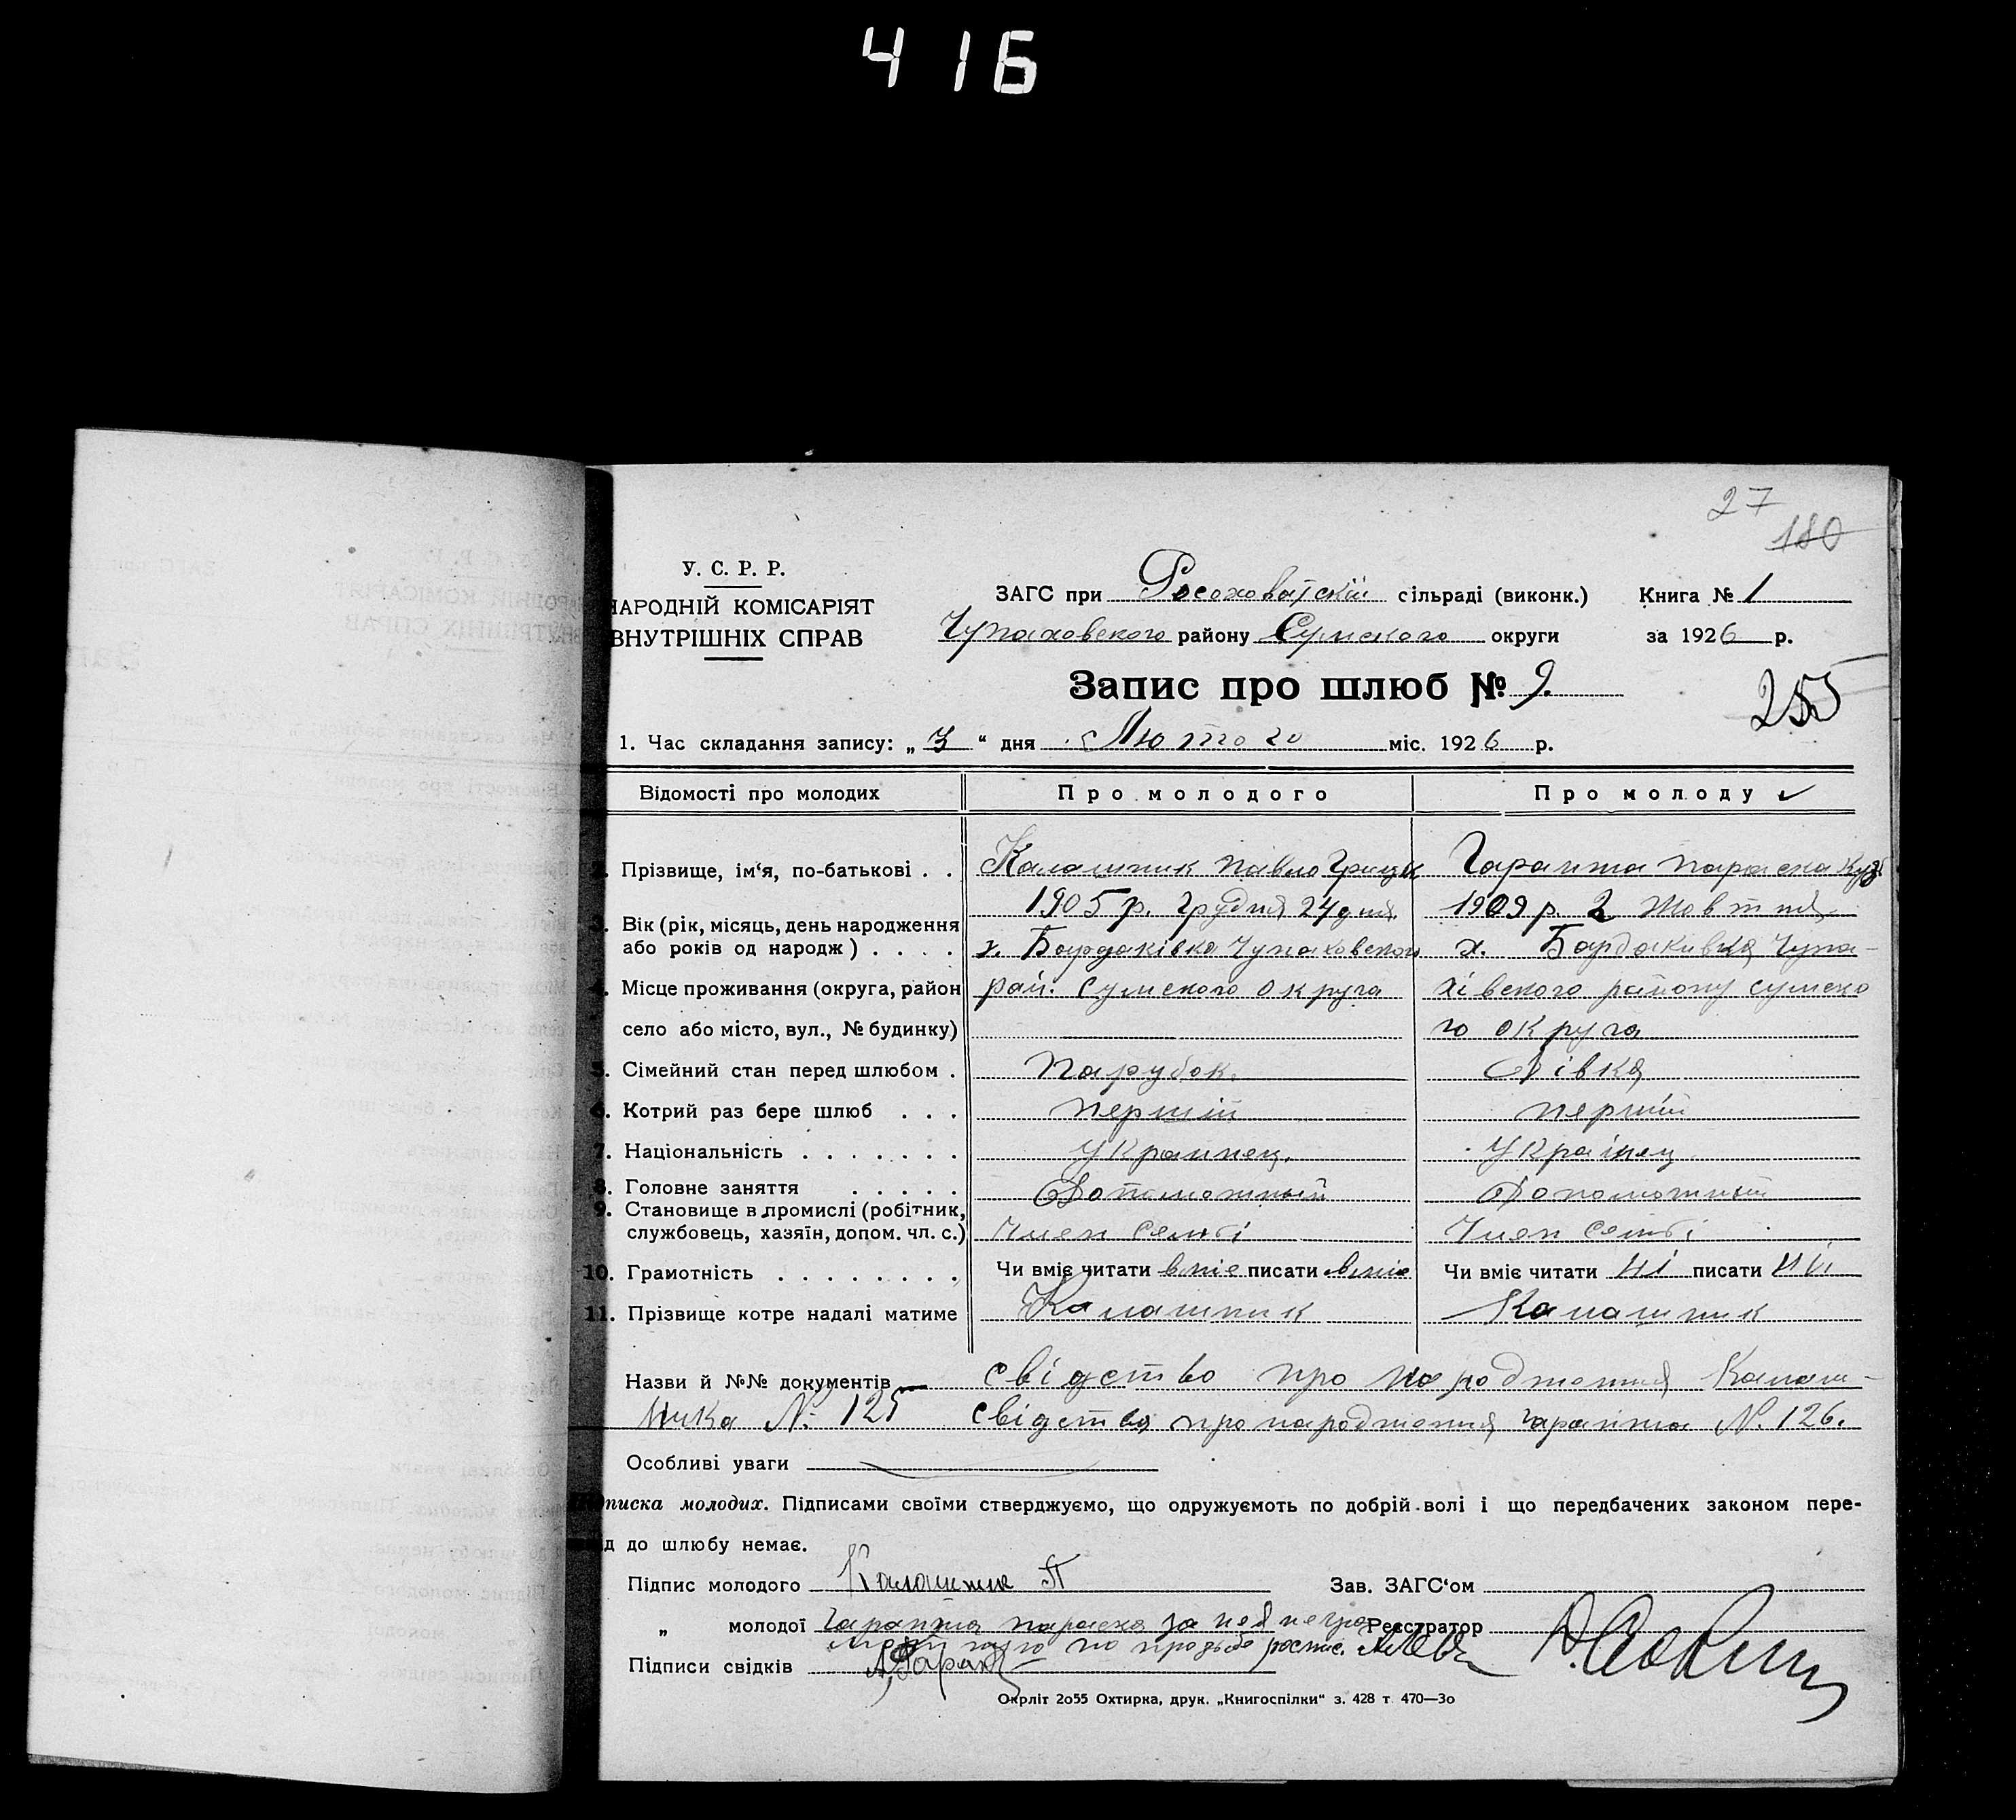 416
27
180
У. С. Р. Р.
НАРОДНІЙ КОМІСАРІЯТ
ВНУТРІШНІХ СПРАВ
ЗАГС при Росоховатскій сільраді (виконк.) Книга № 1
Чупаховского району Сумского округи за 1926 р.
Запис про шлюб № 9.
255
1. Час складання запису: „ 3 “ дня Лютого міс. 1926 р.
Відомості про молодих Про молодого Про молоду
2. Прізвище, ім‘я, по-батькові . . Калашник Павло Грицьк Гаранжа Параска Кузь
1905 р. Грудня 24 дня 1909 р. 2 Жовтня
3. Вік (рік, місяць, день народження
або років од народж) . . . . х. Бардаківка Чупаховского х. Бардаківка Чупа-
4. Місце проживання (округа, район рай. Сумского округа хівского району сумско
село або місто, вул., № будинку) го округа
5. Сімейний стан перед шлюбом . Парубок. Дівка
6. Котрий раз бере шлюб . . . перший перший
7. Національність . . . . . . . Украинец. Украінец
8. Головне заняття . . . . . Допоможный Допоможный
9. Становище в промислі (робітник,
службовець, хазяїн, допом. чл. с.) Член семьі Член семьі
10. Грамотність . . . . . . . . Чи вміє читати вміє писати вміє Чи вміє читати ні писати ні
11. Прізвище котре надалі матиме Калашник Калашник
Назви й №№ документів свідство про народження Калаш-
ника № 125 свідства про народження Гаранжа № 126.
Особливі уваги
Підписка молодих. Підписами своїми стверджуємо, що одружуємоть по добрій волі і що передбачених законом пере-
шкод до шлюбу немає.
Підпис молодого Калашник П Зав. ЗАГС‘ом
„ молодої Гаранжа Параска за неі негра Реєстратор
по продьбе роспис.
Підписи свідків
Окрліт 2о55 Охтирка, друк. „Книгоспілки“ з. 428 т. 470—3о